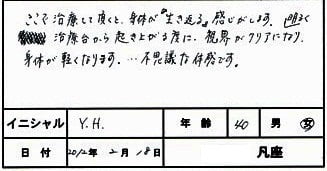 ここで治療して頂くと、身体が『生き返る』感じがします。明るく
治療台から起き上がる度に、視界がクリアになり、
身体が軽くなります。…不思議な体感です。
イニシャル Y.H. 年齢 40 男 女
日付 2012年2月18日 凡座